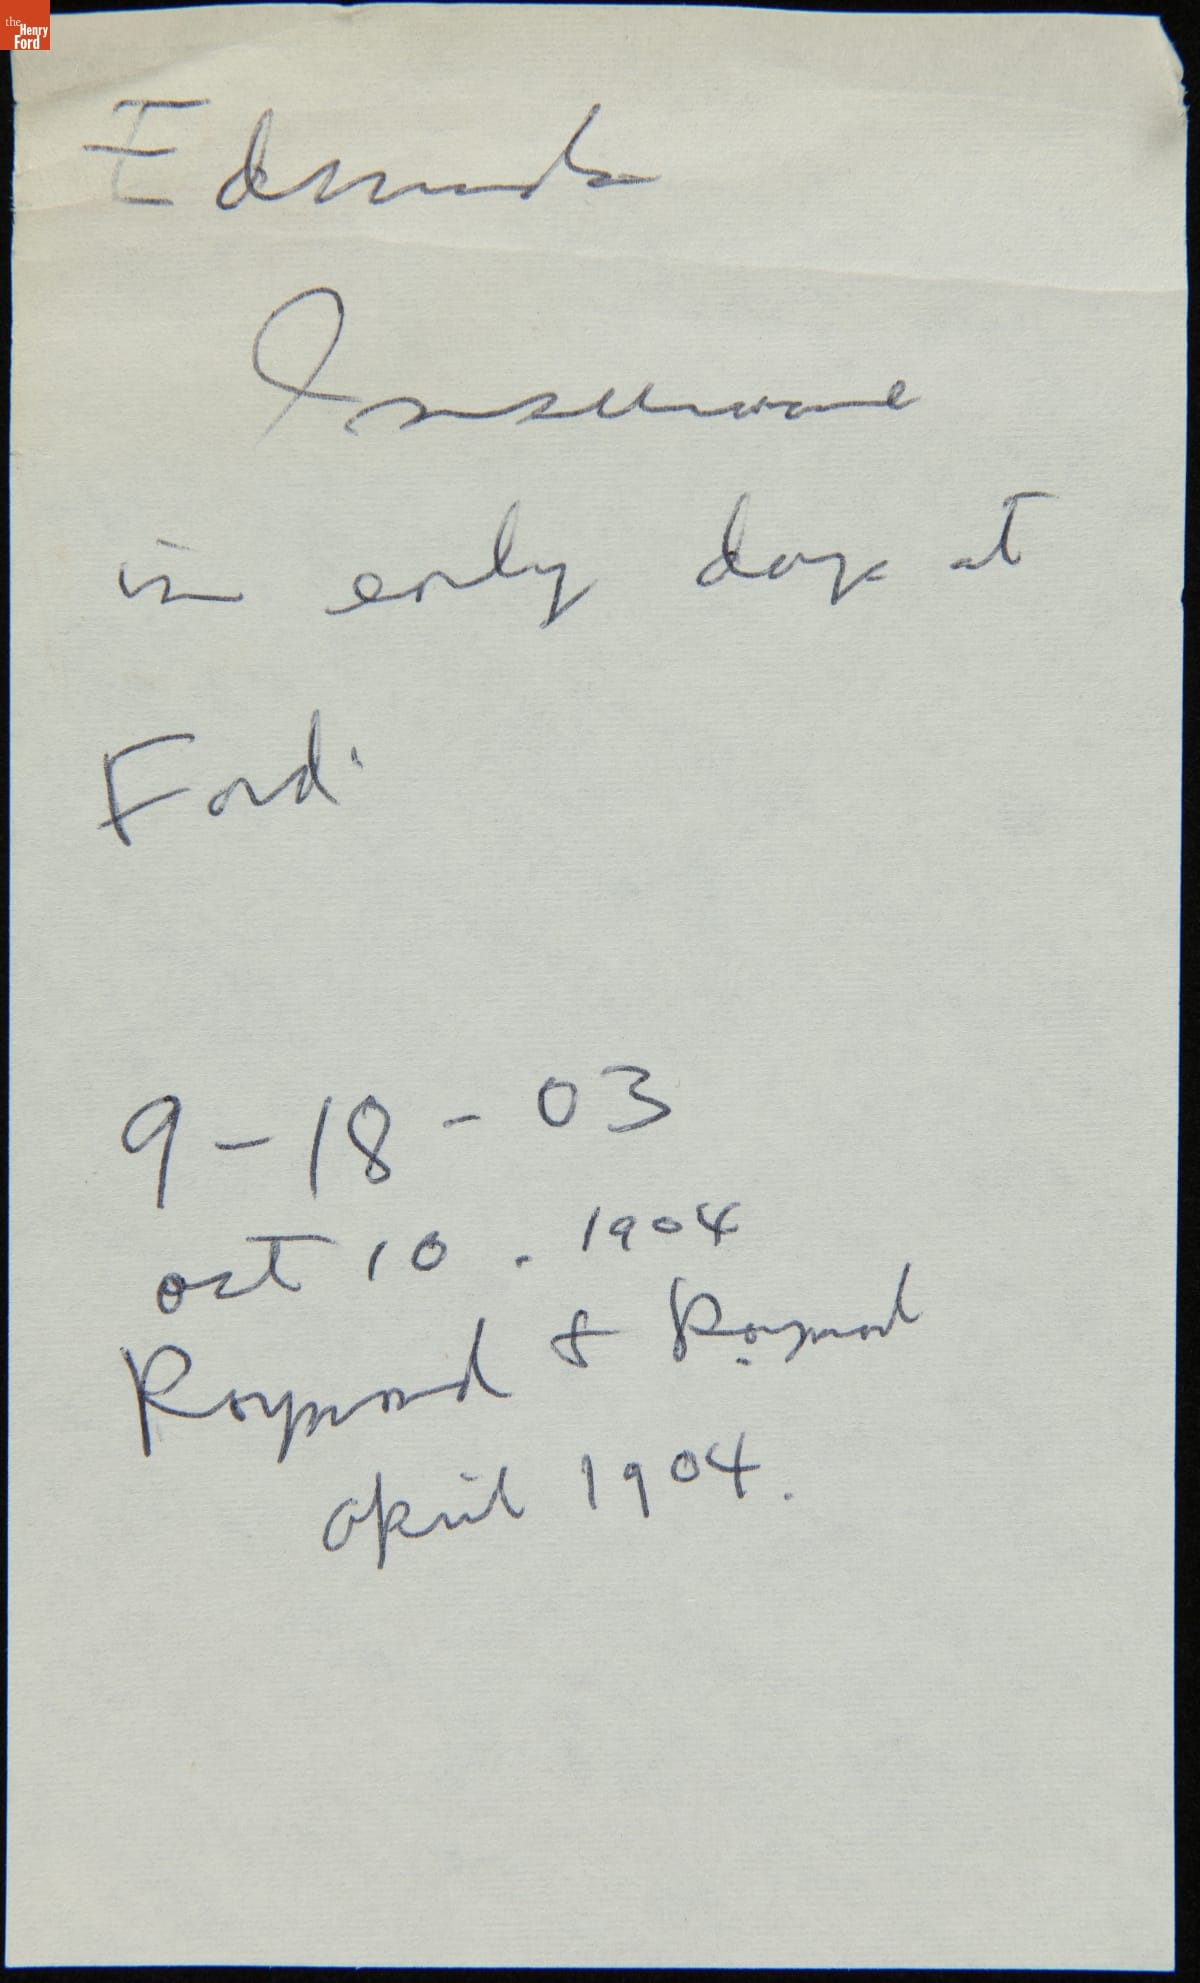 the
Henry
Ford
Edmunds
Insurance
in early days at
Ford.
9-18-03
Oct 10. 1904
Raymond & Raymond
April 1904.